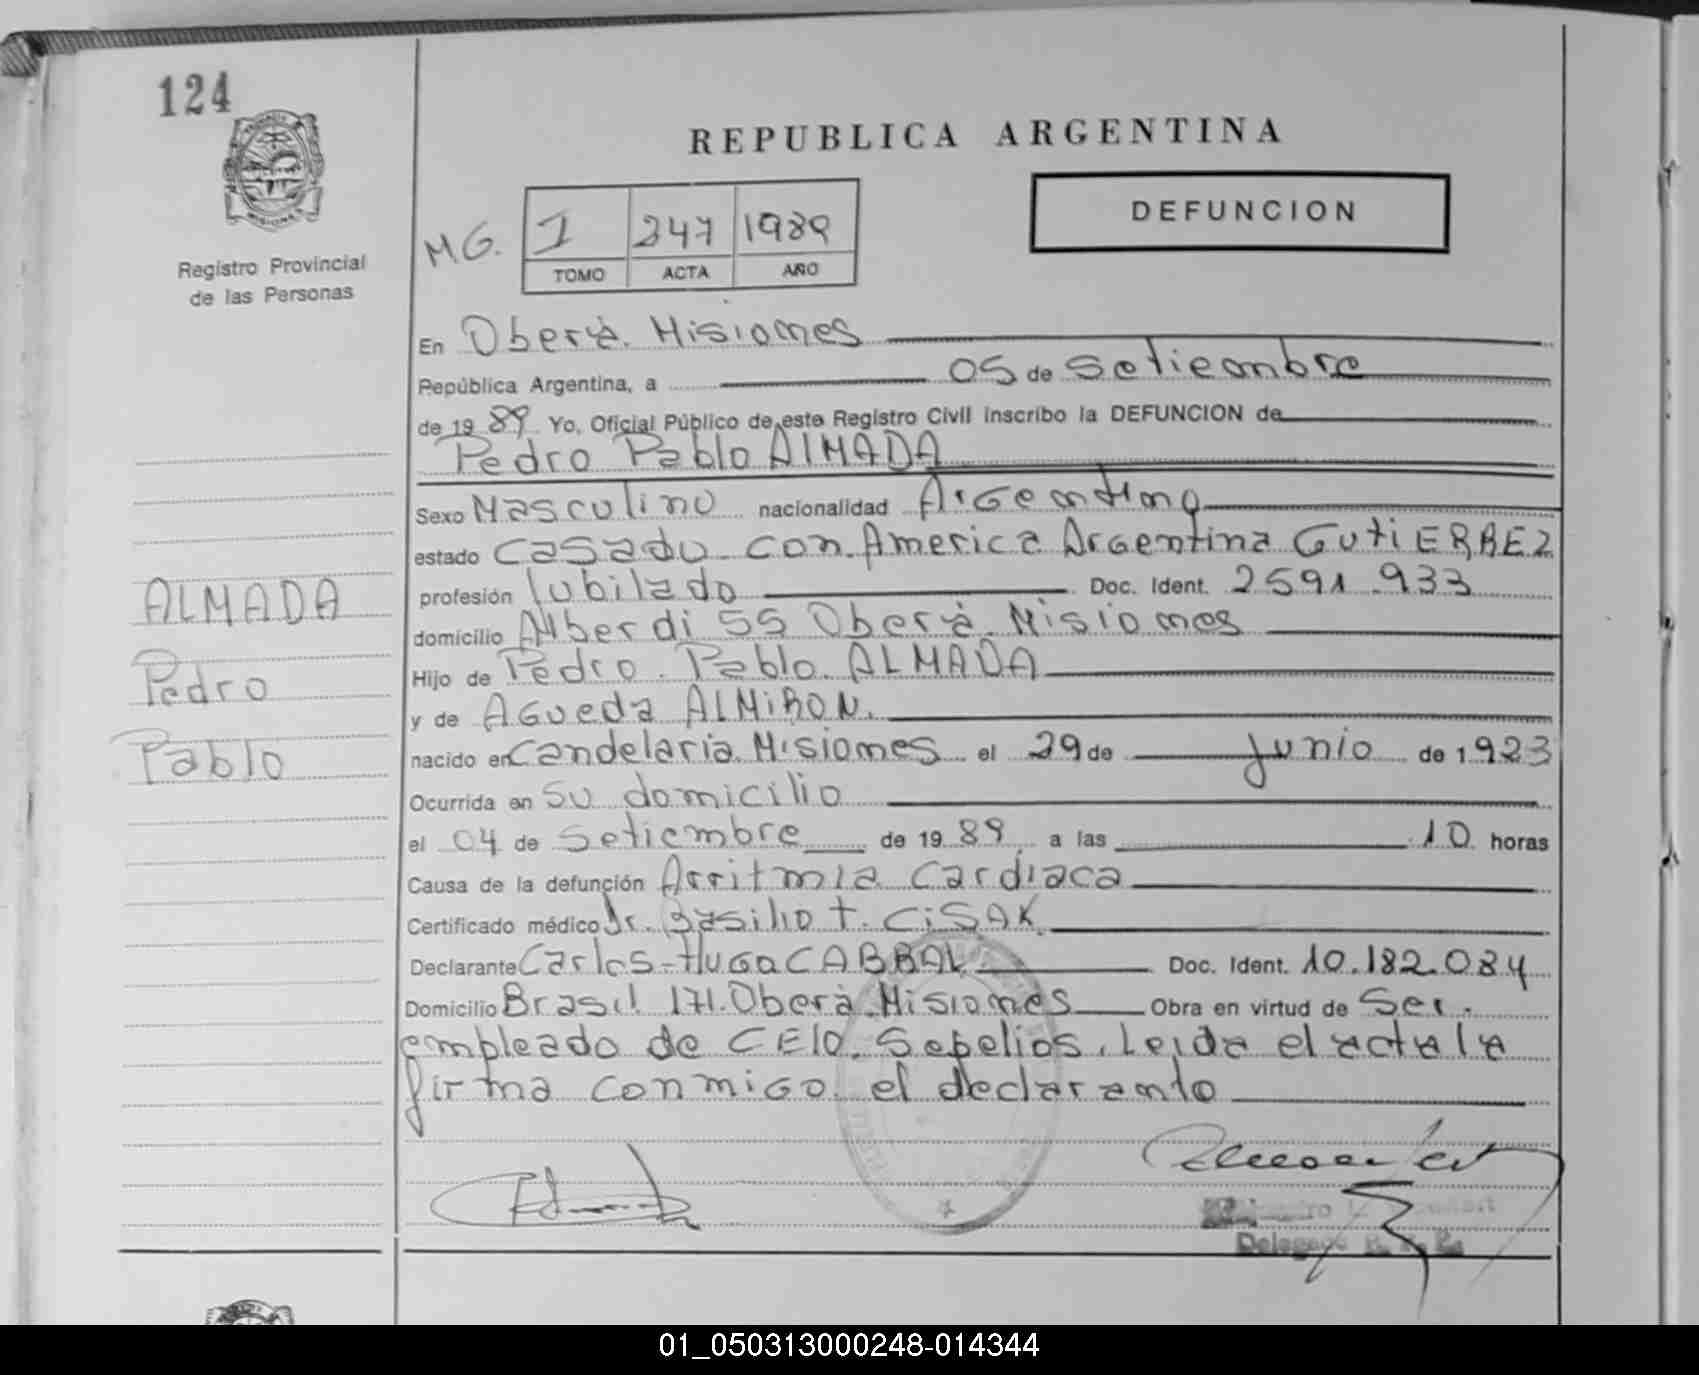 124
MISIONES
Registro Provincial
de las Personas
REPUBLICA ARGENTINA
DEFUNCION
MG. 1 247 1989
TOMO ACTA AÑO
En Oberà. Misiones
República Argentina, a 05 de Setiembre
de 19 89 Yo, Oficial Público de este Registro Civil inscribo la DEFUNCION de
Pedro Pablo AlMADA
Sexo Masculino nacionalidad Argentino
estado Casado con America Argentina GutiERREZ
profesión Jubilado Doc. Ident. 2591.933
domicilio Alberdi 55 Oberà Misiones
Hijo de Pedro Pablo ALMADA
y de Agueda AlMiRON.
nacido en Candelaria Misiones el 29 de Junio de 1923
Ocurrida en su domicilio
el 04 de Setiembre de 19 89 a las 10 horas
Causa de la defunción Arritmia Cardiaca
Certificado médico Dr. Basilio t. CiSAK
Declarante Carlos Hugo CABRAL Doc. Ident. 10.182.084
Domicilio Brasil 171. Oberà. Misiones Obra en virtud de Ser
empleado de CElO. Sepelios. Leida el acta la
firma conmigo el declarante
ALMADA
Pedro
Pablo
Delegado
01_050313000248-014344